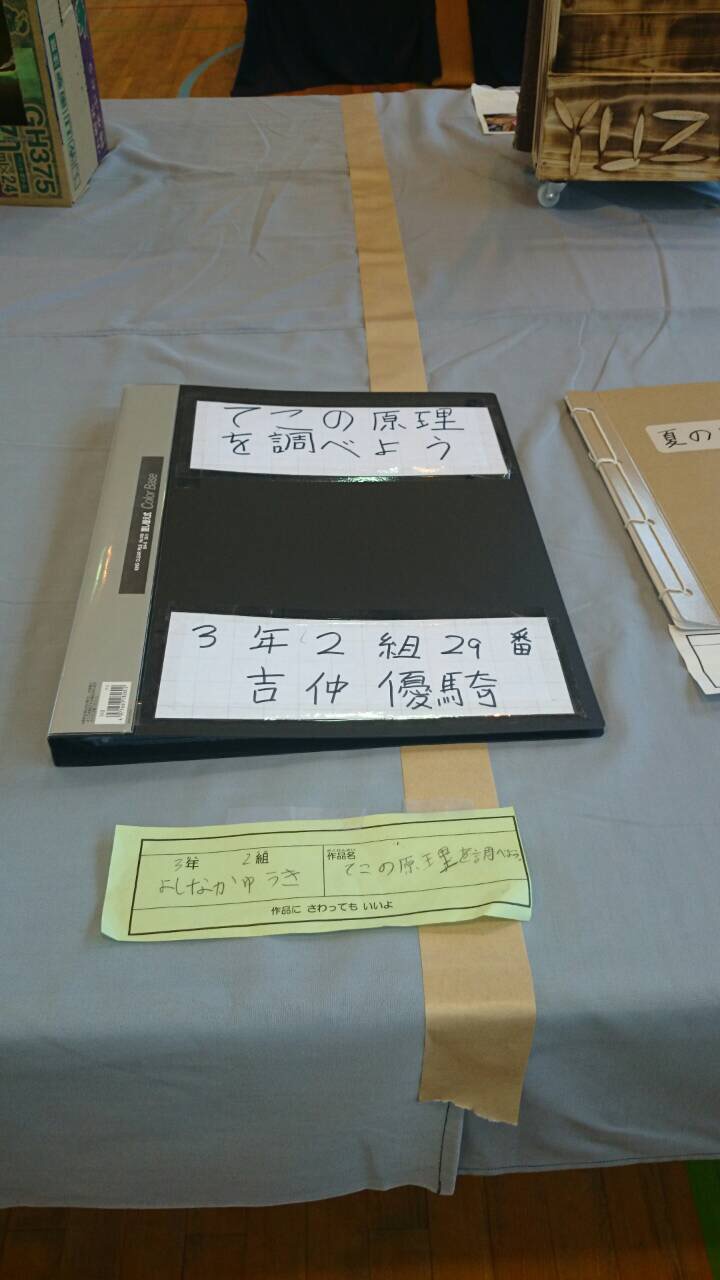 GH375
YUZ
てこの原理
を調べよう
Color Base
夏の
3年2組29番
吉仲優騎
3年 2組
よしなかゆうき
さくひんめい
作品名
てこの原理を調べよう
作品に さわっても いいよ